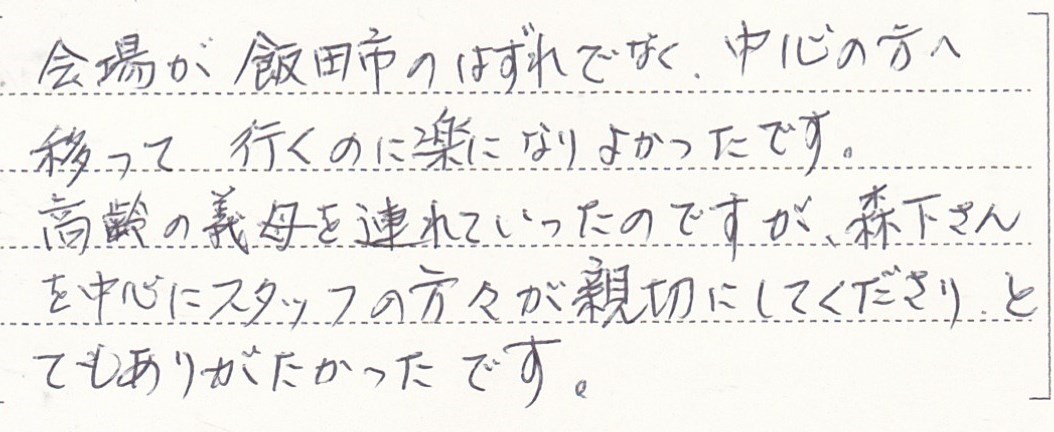 会場が飯田市のはずれでなく、中心の方へ
移って 行くのに楽になりよかったです。
高齢の義母を連れていったのですが、森下さん
を中心にスタッフの方々が親切にしてくださり、と
てもありがたかったです。